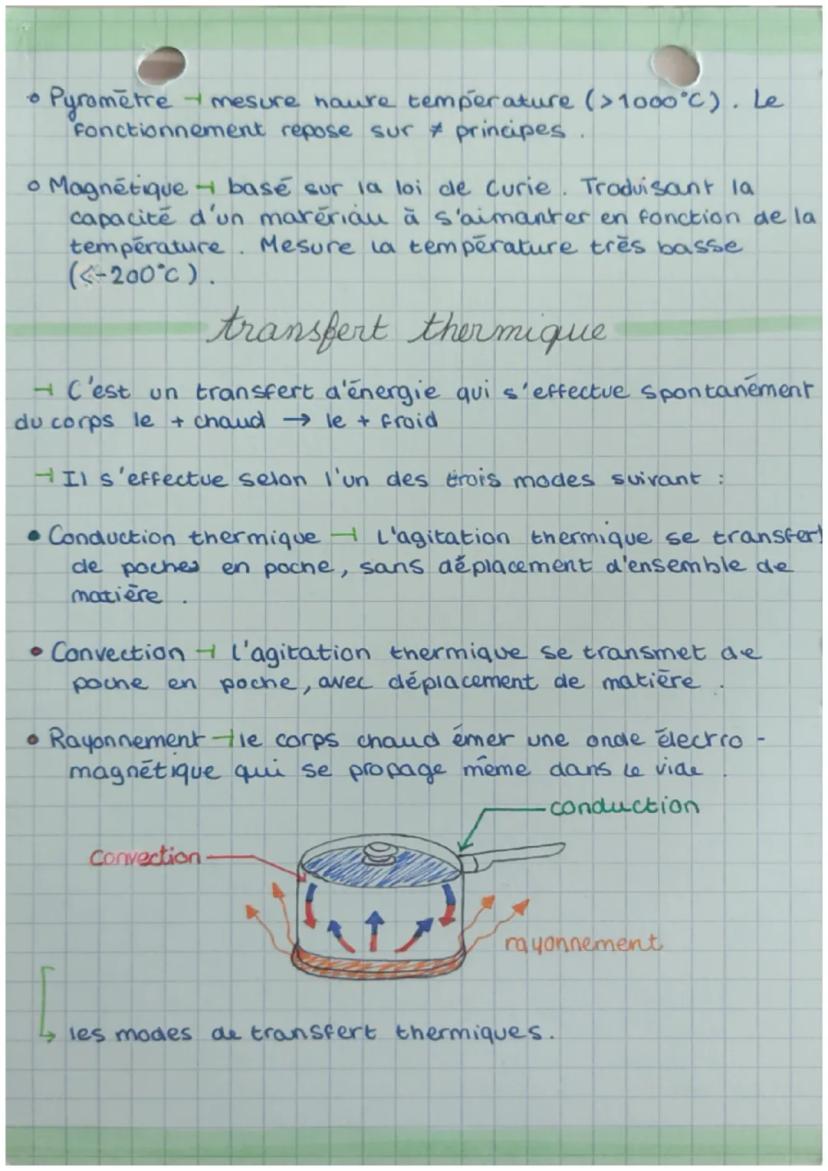 • Pyromètre → mesure haute température (>1000°C). Le
fonctionnement repose sur ≠ principes.
• Magnétique → basé sur la loi de Curie. Traduisant la
capacité d'un matériau à s'aimanter en fonction de la
température. Mesure la température très basse
(<-200°C).
transfert thermique
→ C'est un transfert d'énergie qui s'effectue spontanément
du corps le + chaud → le + froid
→ Il s'effectue selon l'un des trois modes suivant :
• Conduction thermique → L'agitation thermique se transfert
de poches en poche, sans déplacement d'ensemble de
matière.
• Convection → l'agitation thermique se transmet de
poche en poche, avec déplacement de matière.
• Rayonnement → le corps chaud émet une onde électro-
magnétique qui se propage même dans le vide.
conduction
convection
rayonnement
↳ les modes de transfert thermiques.